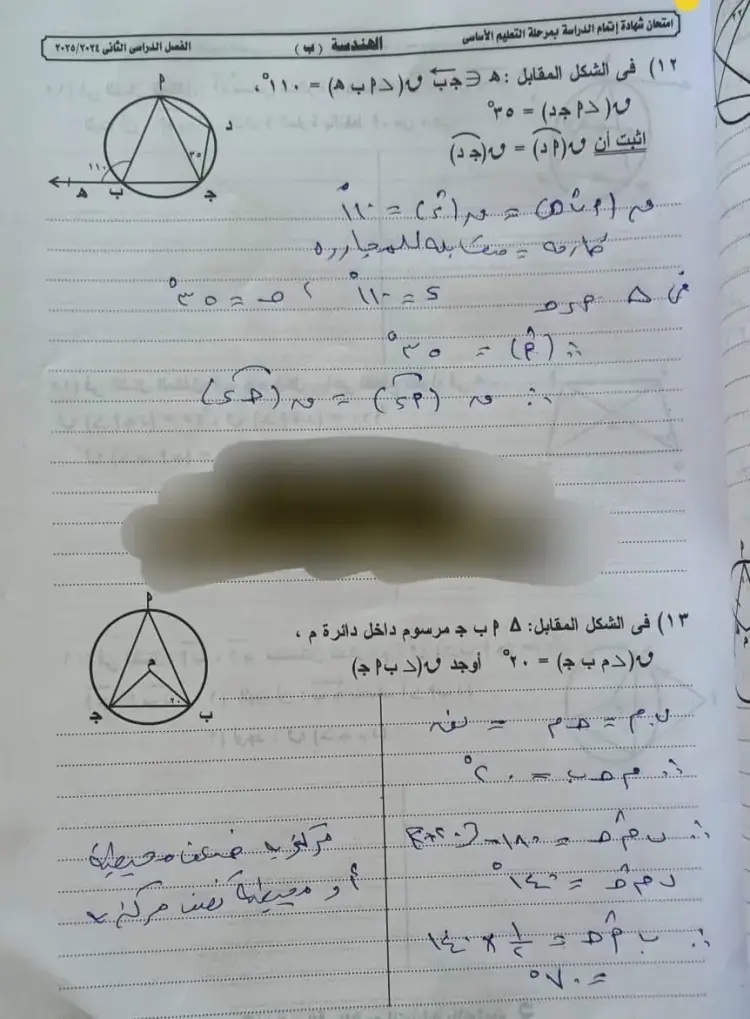 امتحان شهادة إتمام الدراسة بمرحلة التعليم الأساسى
الهندسة (ب)
الفصل الدراسى الثانى ٢٠٢٥/٢٠٢٤
١٢) فى الشكل المقابل : هـ ∈ جـ ب ق(ح م ب هـ) = ١١٠°،
ق(ح م جـ د) = ٣٥°
اثبت أن ق(م د) = ق(جـ د)
م
د
٣٥
١١٠
هـ
ب
جـ
ق (م ب هـ) = ق (د) = ١١٠°
خارجه = مقابله للمجاوره
فى Δ م د حـ
د = ١١٠° ، حـ = ٣٥°
∴ (م) = ٣٥°
∴ ق (م د) = ق (حـ د)
١٣) فى الشكل المقابل: Δ م ب جـ مرسوم داخل دائرة م ،
ق(ح م ب جـ) = ٢٠° أوجد ق(ح ب م جـ)
م
م
٢٠
جـ
ب
ب م = حـ م = نق
∴ م حـ ب = ٢٠°
∴ ب م حـ = ١٨٠ - (٢٠+٢٠)
ب م حـ = ١٤٠°
∴ ب م حـ = ١/٢ × ١٤٠
= ٧٠°
مركزيه ضعف محيطية
أو محيطية نصف مركزيه